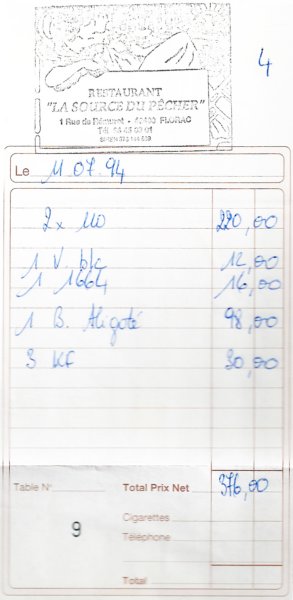 4
RESTAURANT
"LA SOURCE DU PÊCHER"
1 Rue de Rémuret • 48400 FLORAC
Tél. 66 45 03 01
Le 11.07.94
2 x 110 220,00
1 V. blc 12,00
1 1664 16,00
1 B. Aligoté 98,00
3 KF 30,00
Table N° Total Prix Net 376,00
9
Cigarettes
Téléphone
Total